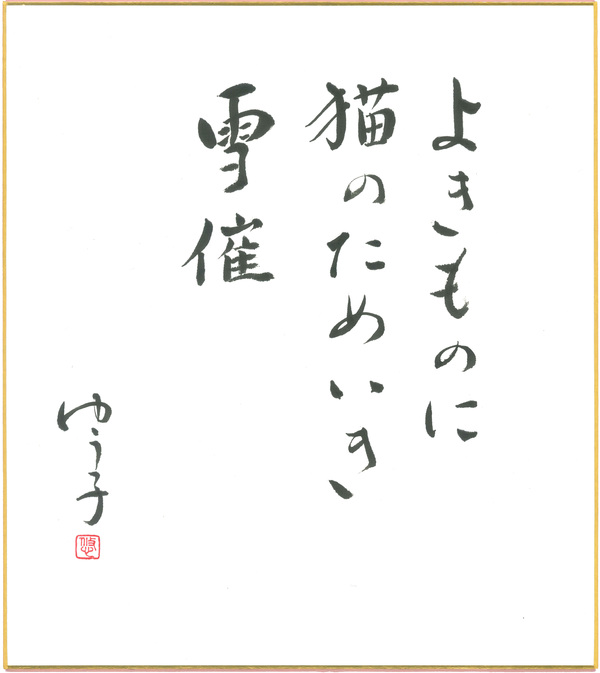 よきものに
猫のためいき
雪催
ゆう子
悠